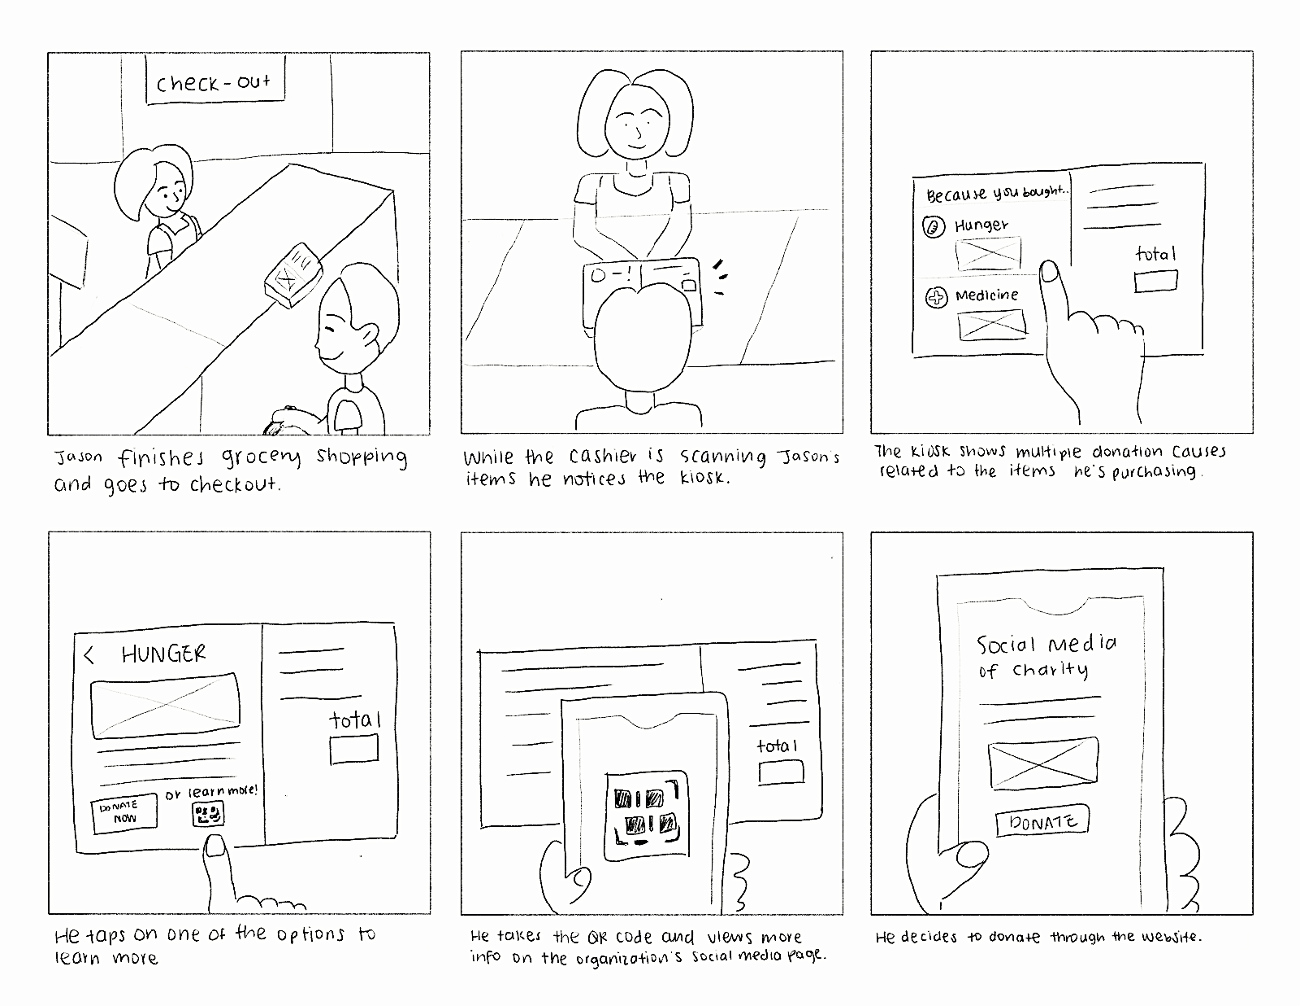 check-out
Jason finishes grocery shopping
and goes to checkout.
While the cashier is scanning Jason's
items he notices the kiosk.
Because you bought..
Hunger
total
Medicine
The kiosk shows multiple donation causes
related to the items he's purchasing.
< HUNGER
total
or learn more!
DONATE
NOW
He taps on one of the options to
learn more
total
He takes the QR code and views more
info on the organization's social media page.
Social media
of charity
DONATE
He decides to donate through the website.